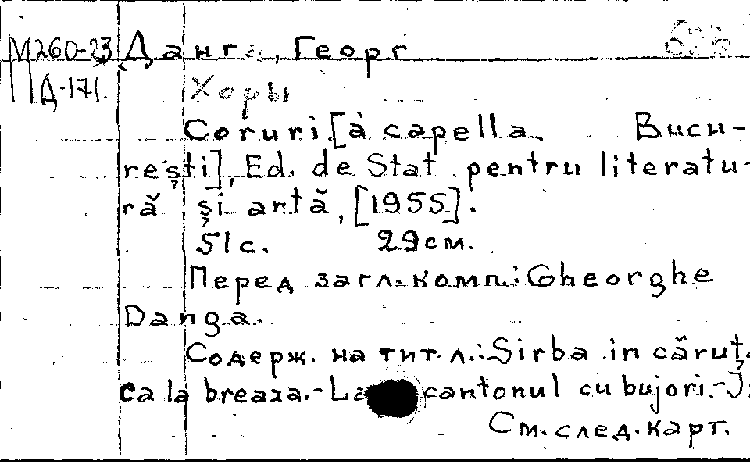 М260-23 Данга, Георг
Д-171. Хоры
Coruri [à capella. Bucu-
rești], Ed. de Stat pentru literatu-
ră și artă, [1955].
51 с. 29 см.
Перед загл. комп.: Gheorghe
Danga.
Содерж. на тит. л.: Sirba in căruț.
ca la breaza.- La cantonul cu bujori.-
См. след. карт.